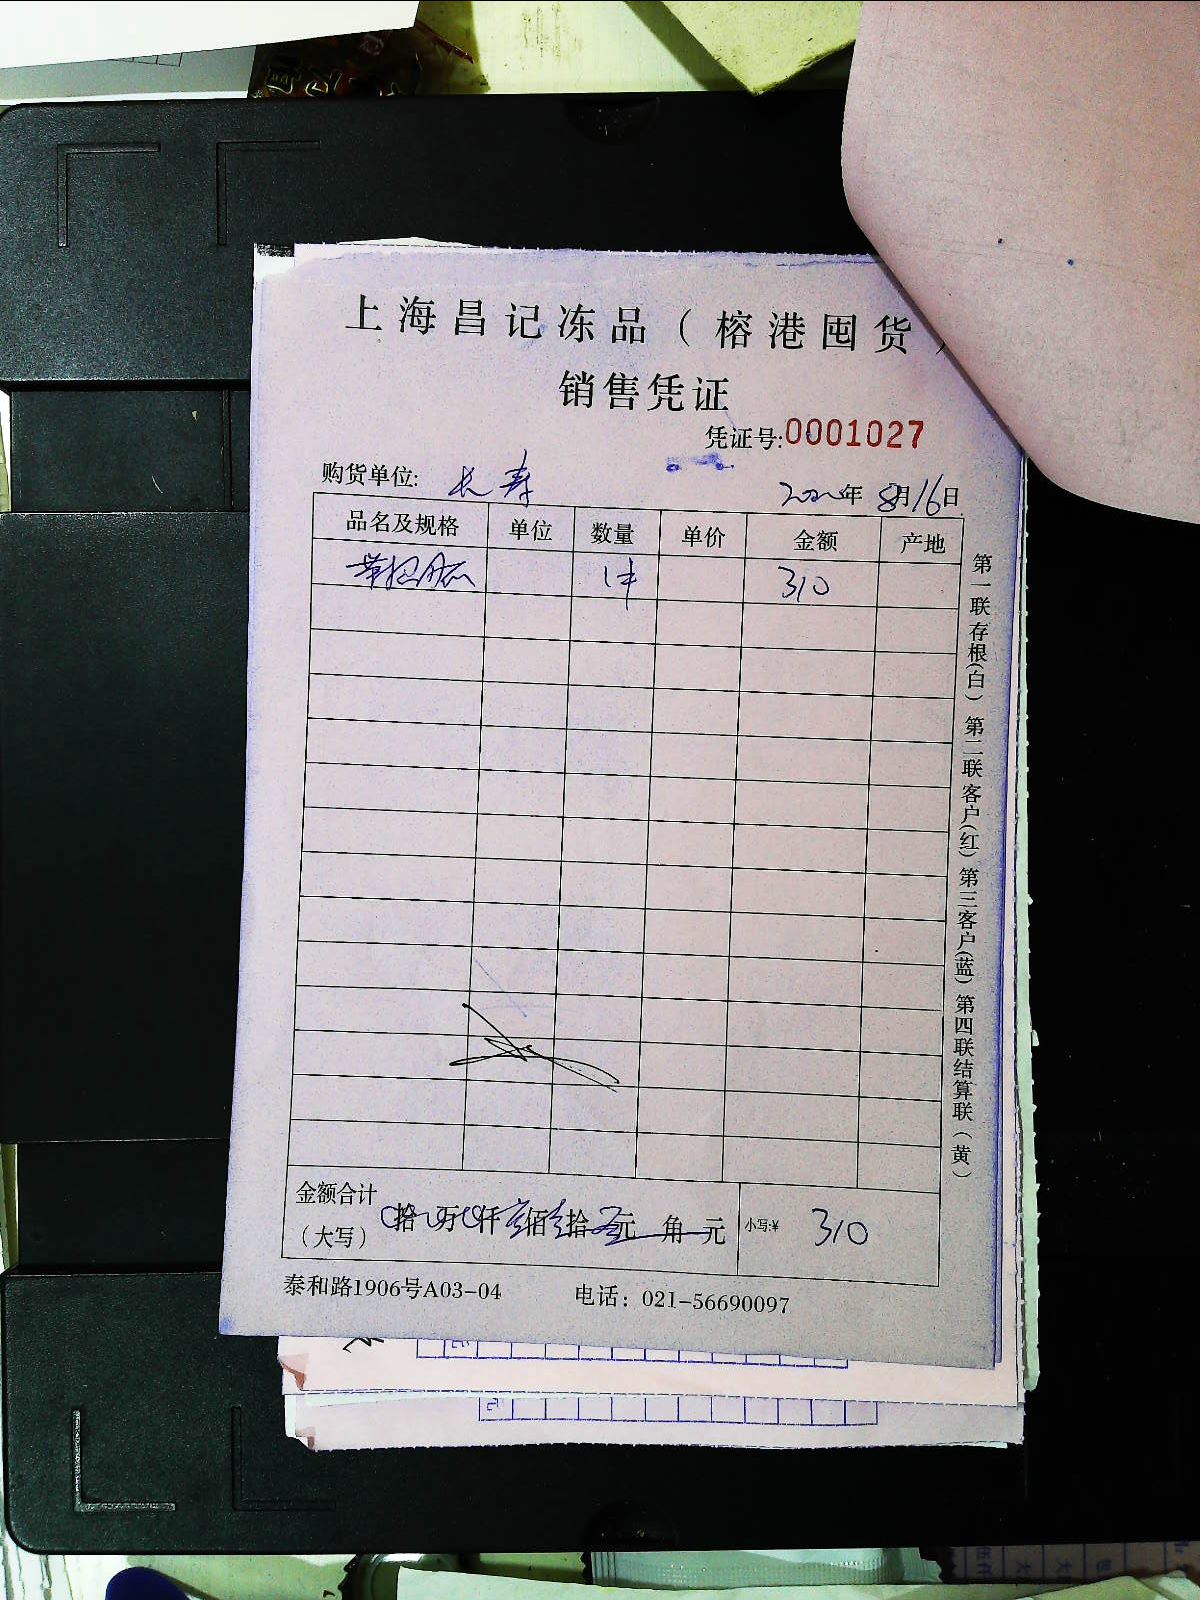 上海昌记冻品（榕港囤货）
销售凭证
凭证号:0001027
购货单位: 长寿 2020年8月16日
品名及规格 单位 数量 单价 金额 产地
1件 310
金额合计
（大写） 拾 万 仟 叁佰 壹拾 元 角 元 小写:¥ 310
泰和路1906号A03-04 电话：021-56690097
第一联存根(白) 第二联客户(红) 第三客户(蓝) 第四联结算联(黄)